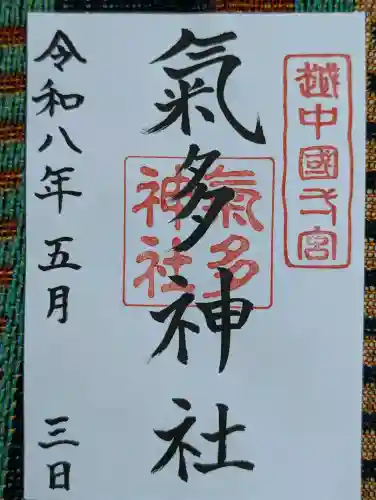 越中國弌宮
氣多神社
氣多
神社
令和八年五月 三日